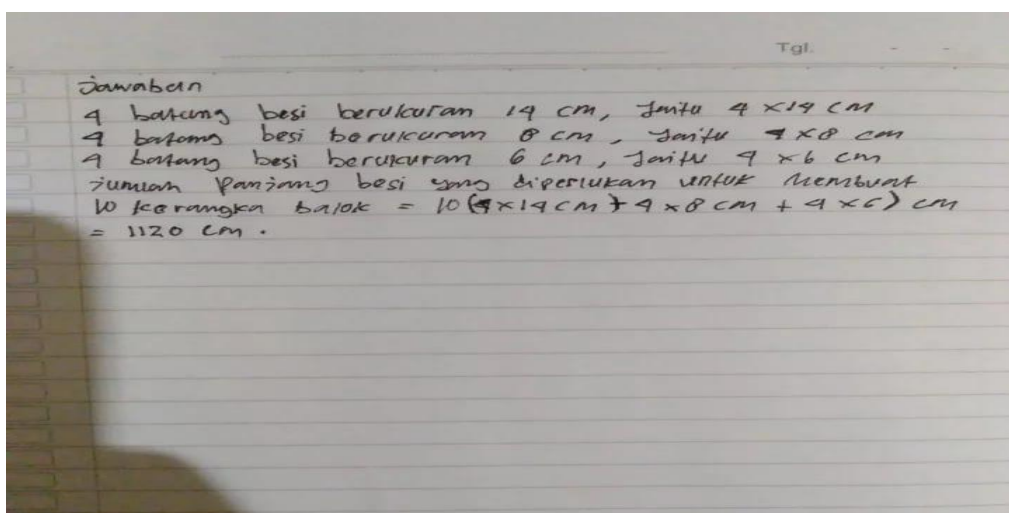 Tgl. - -
Jawaban
4 batang besi berukuran 14 cm, yaitu 4 x 14 cm
4 batang besi berukuran 8 cm, yaitu 4 x 8 cm
4 batang besi berukuran 6 cm, yaitu 4 x 6 cm
Jumlah Panjang besi yang diperlukan untuk Membuat
10 kerangka balok = 10 (4 x 14 cm + 4 x 8 cm + 4 x 6) cm
= 1120 cm.